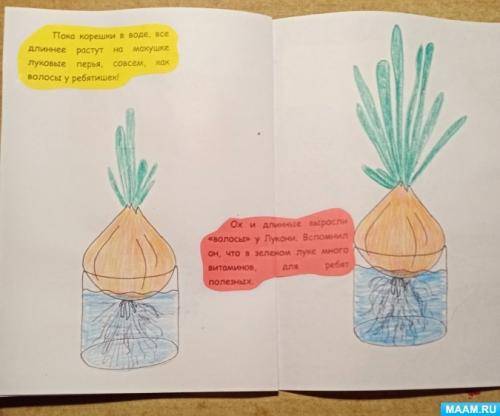 Пока корешки в воде, все
длиннее растут на макушке
луковые перья, совсем, как
волосы у ребятишек!
Ох и длинные выросли
«волосы» у Лукани. Вспомнил
он, что в зеленом луке много
витаминов, для ребят
полезных.
MAAM.RU